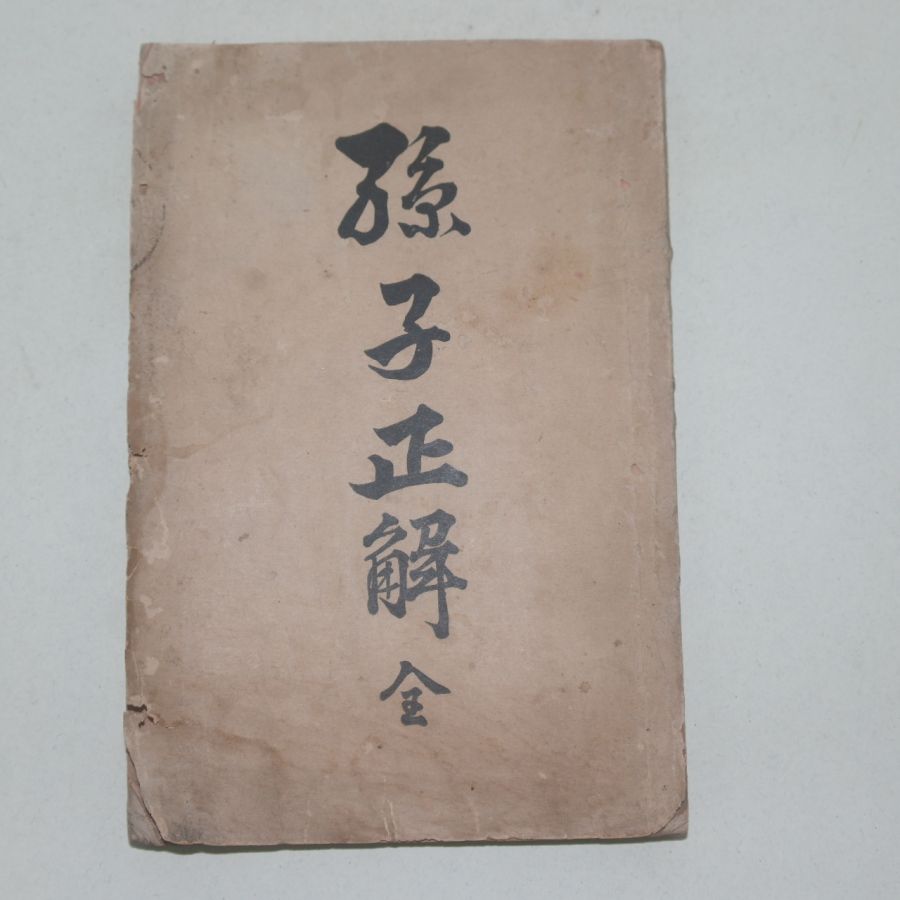 孫子正解 全